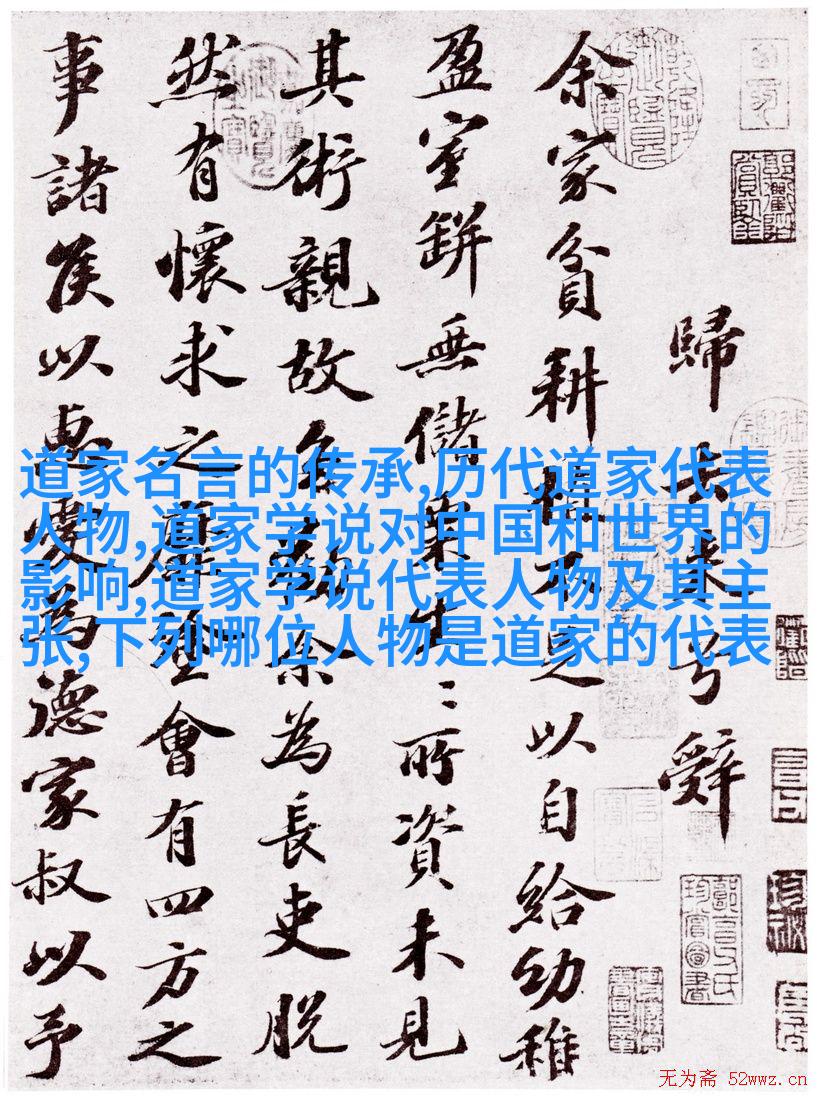 歸去来兮辭
余家貧耕植不足以自給幼稚
盈室缾無儲粟生〻所資未見
其術親故多勸余為長吏脱
然有懷求之靡途會有四方之
事諸侯以惠愛為德家叔以予
道家名言的传承,历代道家代表
人物,道家学说对中国和世界的
影响,道家学说代表人物及其主
张,下列哪位人物是道家的代表
无为斋 52wwz.cn